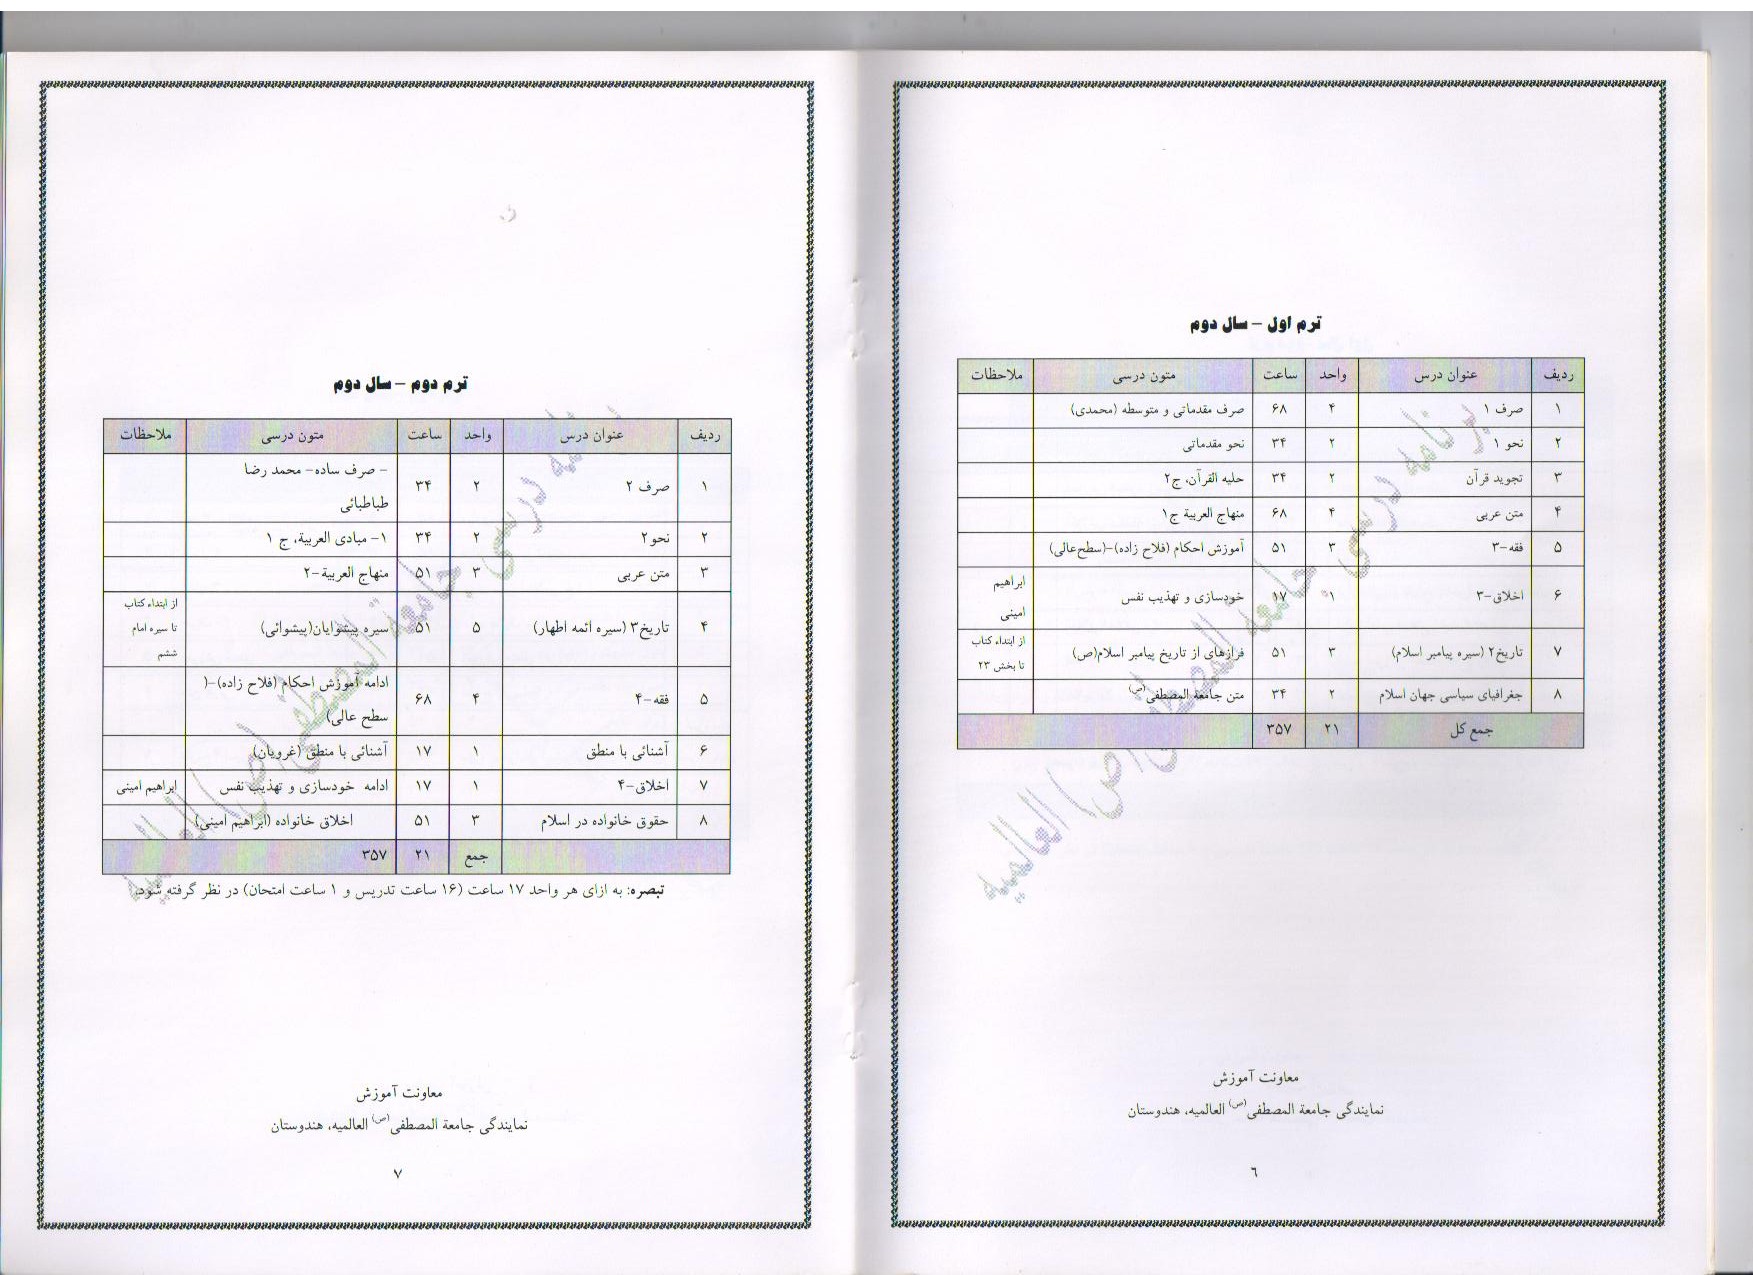 ترم اول – سال دوم
ردیف عنوان درس واحد ساعت متون درسی ملاحظات
۱ صرف ۱ ۴ ۶۸ صرف مقدماتی و متوسطه (محمدی)
۲ نحو ۱ ۲ ۳۴ نحو مقدماتی
۳ تجوید قرآن ۲ ۳۴ حلیه القرآن، ج۲
۴ متن عربی ۴ ۶۸ منهاج العربیة ج۱
۵ فقه-۳ ۳ ۵۱ آموزش احکام (فلاح زاده)-(سطح عالی)
۶ اخلاق-۳ ۱ ۱۷ خودسازی و تهذیب نفس ابراهیم
امینی
۷ تاریخ۲ (سیره پیامبر اسلام) ۳ ۵۱ فرازهای از تاریخ پیامبر اسلام(ص) از ابتداء کتاب
تا بخش ۲۳
۸ جغرافیای سیاسی جهان اسلام ۲ ۳۴ متن جامعة المصطفی(ص)
جمع کل ۲۱ ۳۵۷
برنامه درسی جامعة المصطفی(ص) العالمیه
معاونت آموزش
نمایندگی جامعة المصطفی(ص) العالمیه، هندوستان
٦
ترم دوم – سال دوم
ردیف عنوان درس واحد ساعت متون درسی ملاحظات
۱ صرف ۲ ۲ ۳۴ - صرف ساده- محمد رضا
طباطبائی
۲ نحو۲ ۲ ۳۴ ۱- مبادی العربیة، ج ۱
۳ متن عربی ۳ ۵۱ منهاج العربیة-۲
۴ تاریخ۳ (سیره ائمه اطهار) ۵ ۵۱ سیره پیشوایان(پیشوائی) از ابتداء کتاب
تا سیره امام
ششم
۵ فقه-۴ ۴ ۶۸ ادامه آموزش احکام (فلاح زاده)-(
سطح عالی)
۶ آشنائی با منطق ۱ ۱۷ آشنائی با منطق (غرویان)
۷ اخلاق-۴ ۱ ۱۷ ادامه خودسازی و تهذیب نفس ابراهیم امینی
۸ حقوق خانواده در اسلام ۳ ۵۱ اخلاق خانواده (ابراهیم امینی)
جمع ۲۱ ۳۵۷
تبصره: به ازای هر واحد ۱۷ ساعت (۱۶ ساعت تدریس و ۱ ساعت امتحان) در نظر گرفته شود.
برنامه درسی جامعة المصطفی(ص) العالمیه
معاونت آموزش
نمایندگی جامعة المصطفی(ص) العالمیه، هندوستان
۷